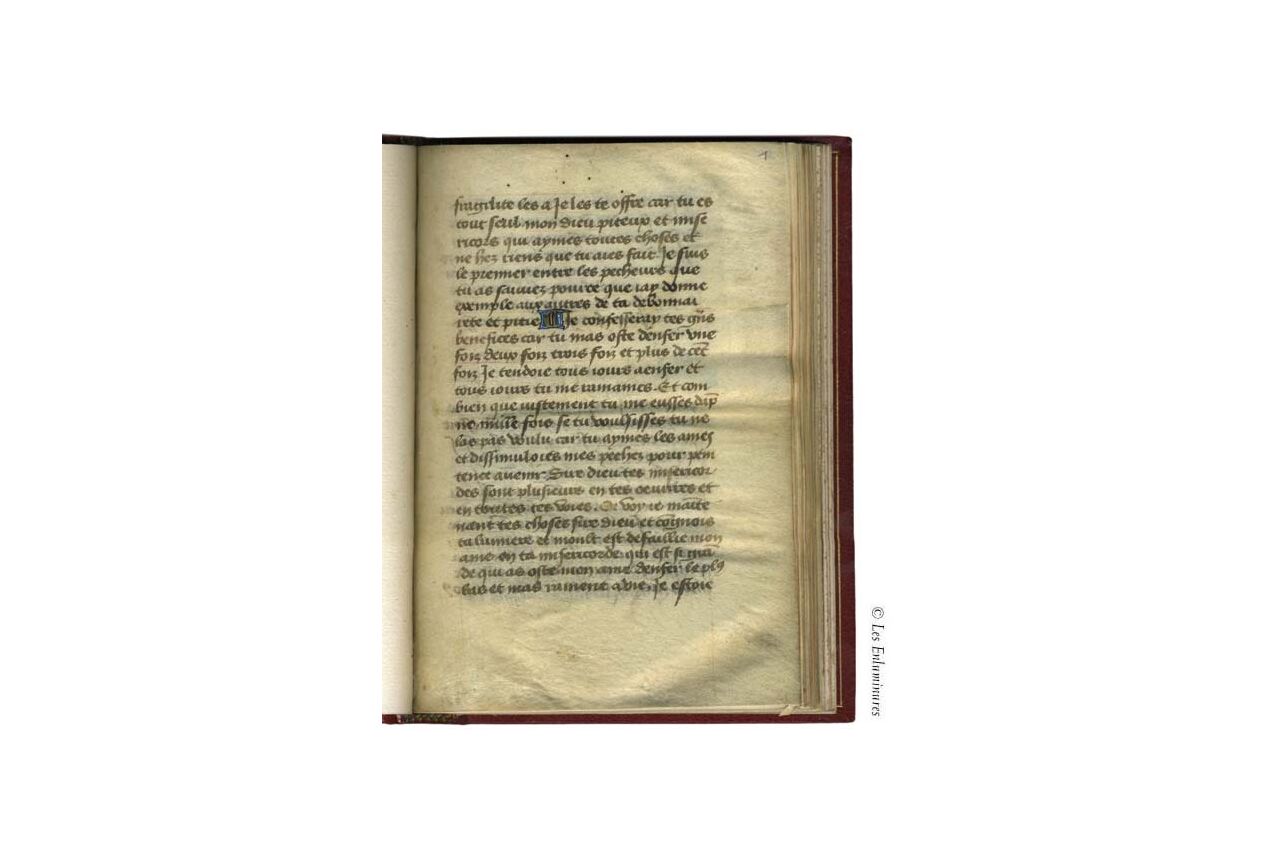 1
fragilite les a Je les te offre car tu es
tout seul mon dieu piteux et mise
ricors qui aymes toutes choses et
ne hez riens que tu aies fait. Je suis
le premier entre les pecheurs que
tu as sauuez pource que iay donne
exemple aux autres de ta debonnai
rete et pitie Je confesseray tes gñs
benefices car tu mas oste denfer vne
foiz deux foiz trois foiz et plus de cēt
foiz Je tendoie tous iours a enfer et
tous iours tu me ramames. Et com
bien que iustement tu me eusses dāp
ne mille fois se tu voulsisses tu ne
las pas voulu car tu aymes les ames
et dissimuloies mes pechez pour peni
tence auenir. Sire dieu tes misericor
des sont plusieurs en tes oeuures et
en toutes tes voies. Or voy ie mainte
nant tes choses sire dieu et cōgnois
ta lumiere et moult est defaillie mon
ame en ta misericorde qui est si
de qui as oste mon ame denfer le plꝰ
bas et mas ramene a vie. Je estoie
© Les Enluminures